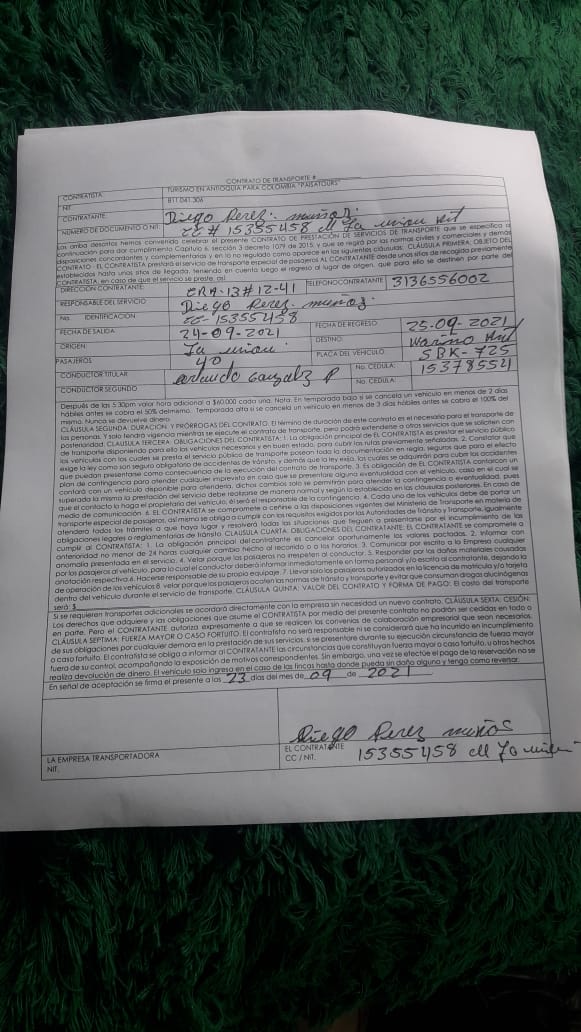 CONTRATO DE TRANSPORTE #
CONTRATISTA TURISMO EN ANTIOQUIA PARA COLOMBIA "PAISATOURS"
NIT 811.041.306
CONTRATANTE: Diego Perez muñoz.
NUMERO DE DOCUMENTO O NIT CC # 15355458 de La union Ant
Los arriba descritos hemos convenido celebrar el presente CONTRATO DE PRESTACIÓN DE SERVICIOS DE TRANSPORTE que se especifica a
continuación para dar cumplimiento Capitulo 6, sección 3 decreto 1079 de 2015, y que se regirá por las normas civiles y comerciales y demás
disposiciones concordantes y complementarias y en lo no regulado como aparece en las siguientes cláusulas: CLÁUSULA PRIMERA: OBJETO DEL
CONTRATO - EL CONTRATISTA prestará el servicio de transporte especial de pasajeros AL CONTRATANTE desde unos sitios de recogida previamente
establecidos hasta unos sitios de llegada, teniendo en cuenta luego el regreso al lugar de origen, que para ello se destinen por parte del
CONTRATISTA, en caso de que el servicio se preste, así
DIRECCION CONTRATANTE: CRA-13#12-41 TELEFONO CONTRATANTE 3136556002
RESPONSABLE DEL SERVICIO Diego Perez. muñoz.
No. IDENTIFICACION CC- 15355458
FECHA DE SALIDA: 24-09-2021 FECHA DE REGRESO: 25-09-2021
ORIGEN: La union DESTINO:
PASAJEROS 40 PLACA DEL VEHICULO SBK-725
CONDUCTOR TITULAR No. CEDULA: 15378552
CONDUCTOR SEGUNDO No. CEDULA:
Después de las 5:30pm valor hora adicional a $60.000 cada una. Nota. En temporada baja si se cancela un vehículo en menos de 2 días
hábiles antes se cobra el 50% delmismo. Temporada alta si se cancela un vehículo en menos de 3 días hábiles antes se cobra el 100% del
mismo. Nunca se devuelve dinero.
CLÁUSULA SEGUNDA: DURACION Y PRÓRROGAS DEL CONTRATO. El término de duración de este contrato es el necesario para el transporte de
las personas. Y solo tendrá vigencia mientras se ejecute el contrato de transporte, pero podrá extenderse a otros servicios que se soliciten con
posterioridad. CLAUSULA TERCERA: OBLIGACIONES DEL CONTRATISTA: 1. La obligación principal de EL CONTRATISTA es prestar el servicio público
de transporte disponiendo para ello los vehículos necesarios y en buen estado, para cubrir las rutas previamente señaladas. 2. Constatar que
los vehículos con los cuales se presta el servicio público de transporte posean toda la documentación en regla, seguros que para el efecto
exige la ley como son seguro obligatorio de accidentes de tránsito, y demás que la ley exija, las cuales se adquirirán para cubrir los accidentes
que puedan presentarse como consecuencia de la ejecución del contrato de transporte. 3. Es obligación de EL CONTRATISTA contarcon un
plan de contingencia para atender cualquier imprevisto en caso que se presentare alguna eventualidad con el vehículo, caso en el cual se
contará con un vehículo disponible para atenderla, dichos cambios solo se permitirán para atender la contingencia o eventualidad, pues
superada la misma la prestación del servicio debe realizarse de manera normal y según lo establecido en las cláusulas posteriores. En caso de
que el contacto lo haga el propietario del vehículo, él será el responsable de la contingencia. 4. Cada uno de los vehículos debe de portar un
medio de comunicación. 6. EL CONTRATISTA se compromete a ceñirse a las disposiciones vigentes del Ministerio de Transporte en materia de
transporte especial de pasajeros, así mismo se obliga a cumplir con los requisitos exigidos por las Autoridades de Tránsito y Transporte, igualmente
atenderá todos los trámites a que haya lugar y resolverá todas las situaciones que lleguen a presentarse por el incumplimiento de las
obligaciones legales o reglamentarias de tránsito. CLAUSULA CUARTA: OBLIGACIONES DEL CONTRATANTE: EL CONTRATANTE se compromete a
cumplir al CONTRATISTA: 1. La obligación principal del contratante es cancelar oportunamente los valores pactados. 2. Informar con
anterioridad no menor de 24 horas cualquier cambio hecho al recorrido o a los horarios. 3. Comunicar por escrito a la Empresa cualquier
anomalía presentada en el servicio. 4. Velar porque los pasajeros no irrespeten al conductor. 5. Responder por los daños materiales causados
por los pasajeros al vehículo, para lo cual el conductor deberá informar inmediatamente en forma personal y/o escrita al contratante, dejando la
anotación respectiva 6. Hacerse responsable de su propio equipaje. 7. Llevar solo los pasajeros autorizados en la licencia de matrícula y/o tarjeta
de operación de los vehículos 8. velar por que los pasajeros acaten las normas de tránsito y transporte y evitar que consuman drogas alucinógenas
dentro del vehículo durante el servicio de transporte. CLÁUSULA QUINTA: VALOR DEL CONTRATO Y FORMA DE PAGO: El costo del transporte
será: $
Si se requieren transportes adicionales se acordará directamente con la empresa sin necesidad un nuevo contrato. CLÁUSULA SEXTA: CESIÓN:
Los derechos que adquiere y las obligaciones que asume el CONTRATISTA por medio del presente contrato no podrán ser cedidas en todo o
en parte. Pero el CONTRATANTE autoriza expresamente a que se realicen los convenios de colaboración empresarial que sean necesarios.
CLÁUSULA SEPTIMA: FUERZA MAYOR O CASO FORTUITO. El contratista no será responsable ni se considerará que ha incurrido en incumplimiento
de sus obligaciones por cualquier demora en la prestación de sus servicios, si se presentare durante su ejecución circunstancia de fuerza mayor
o caso fortuito. El contratista se obliga a informar al CONTRATANTE las circunstancias que constituyan fuerza mayor o caso fortuito, u otros hechos
fuera de su control, acompañando la exposición de motivos correspondientes. Sin embargo, una vez se efectúe el pago de la reservación no se
realiza devolución de dinero. El vehículo solo ingresa en el caso de las fincas hasta donde pueda sin daño alguno y tenga como reversar.
En señal de aceptación se firma el presente a los 23 días del mes de 09 de 2021
Diego Perez muños
LA EMPRESA TRANSPORTADORA EL CONTRATANTE
NIT. CC / NIT. 15355458 de La union